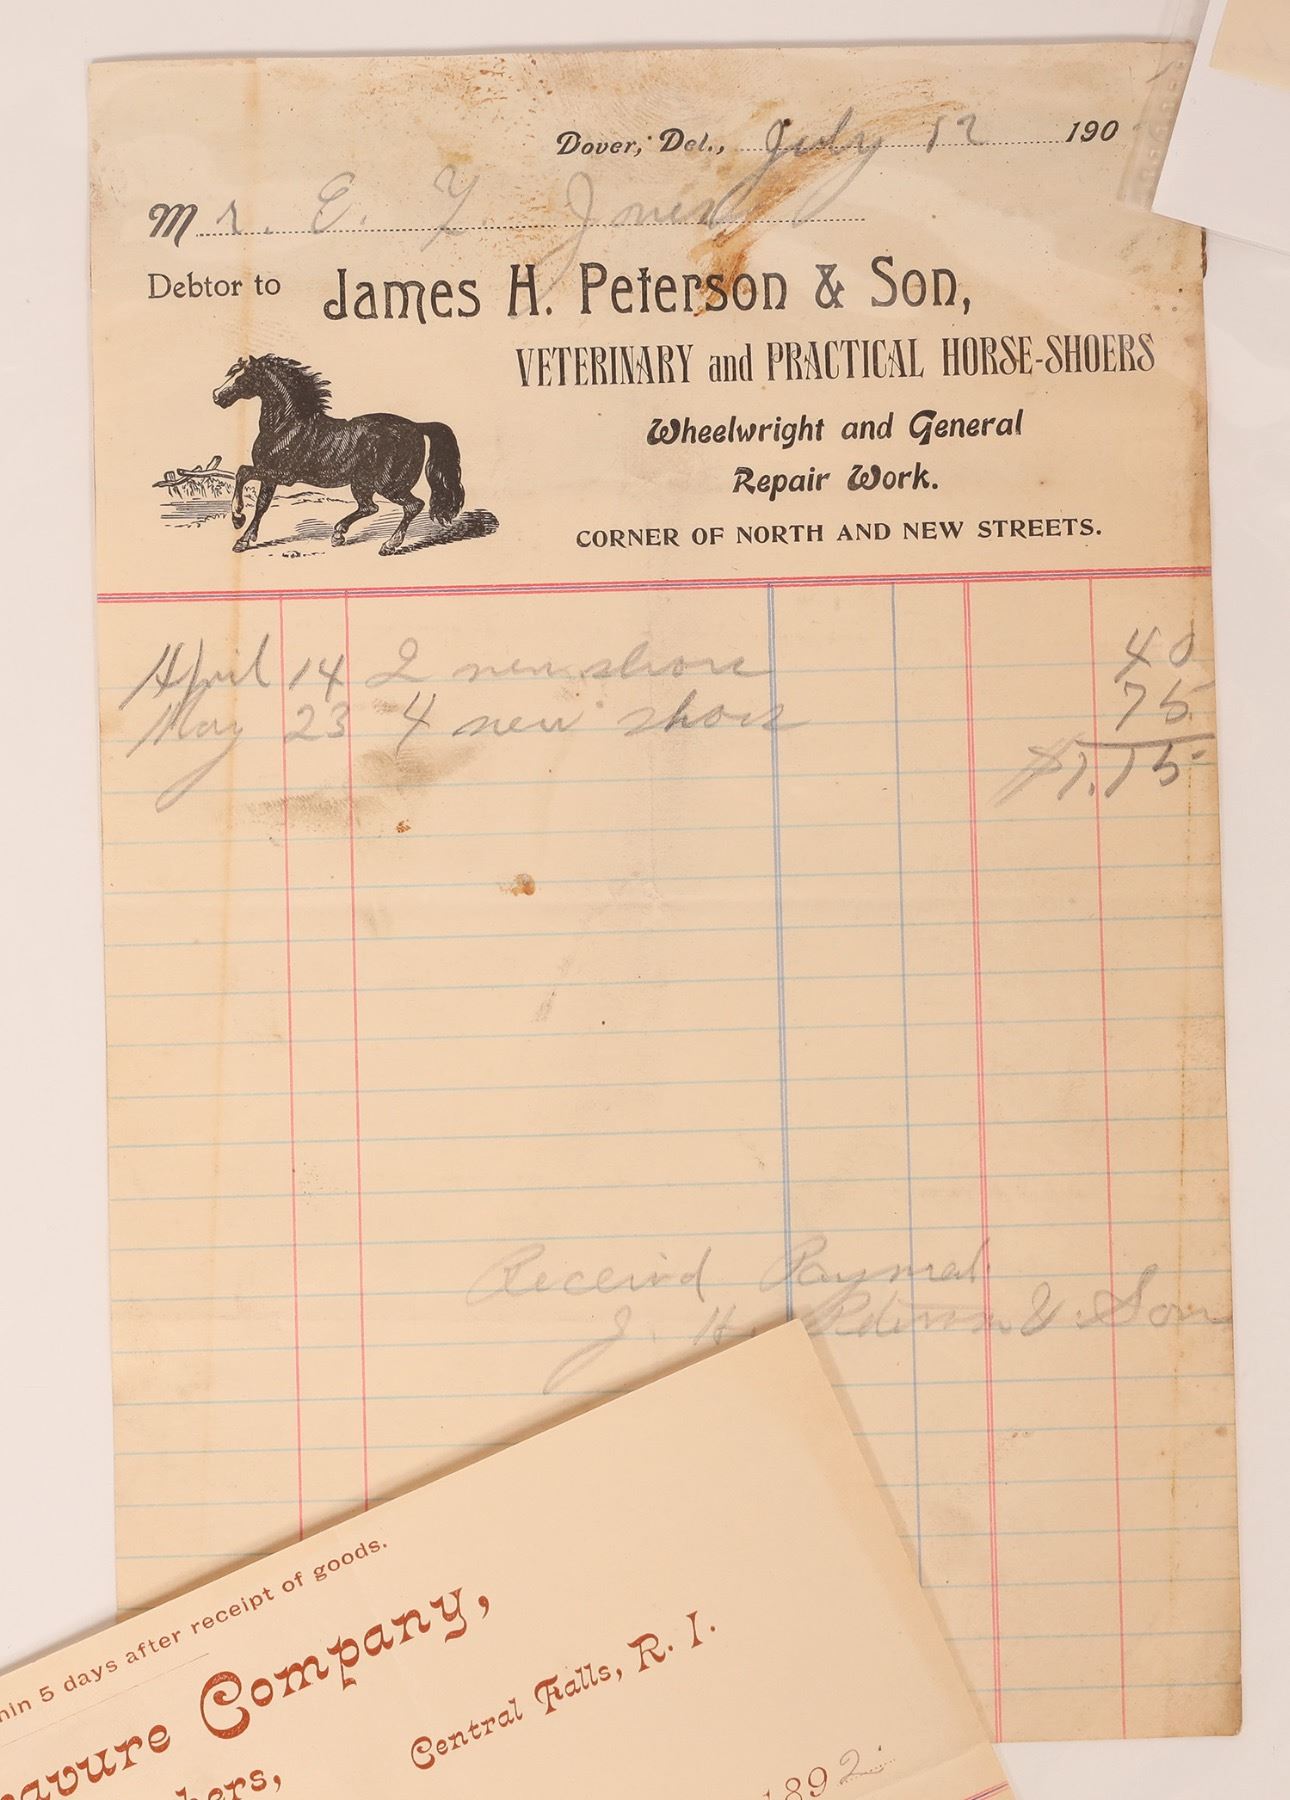 Dover, Del., July 12 190
Mr. E. L. Jones
Debtor to James H. Peterson & Son,
VETERINARY and PRACTICAL HORSE-SHOERS
Wheelwright and General
Repair Work.
CORNER OF NORTH AND NEW STREETS.
April 14 2 new shoes 40
May 23 4 new shoes 75
$1.15
Received Payment
J. H. Peterson & Son
hin 5 days after receipt of goods.
avure Company,
hers, Central Falls, R. I.
1892